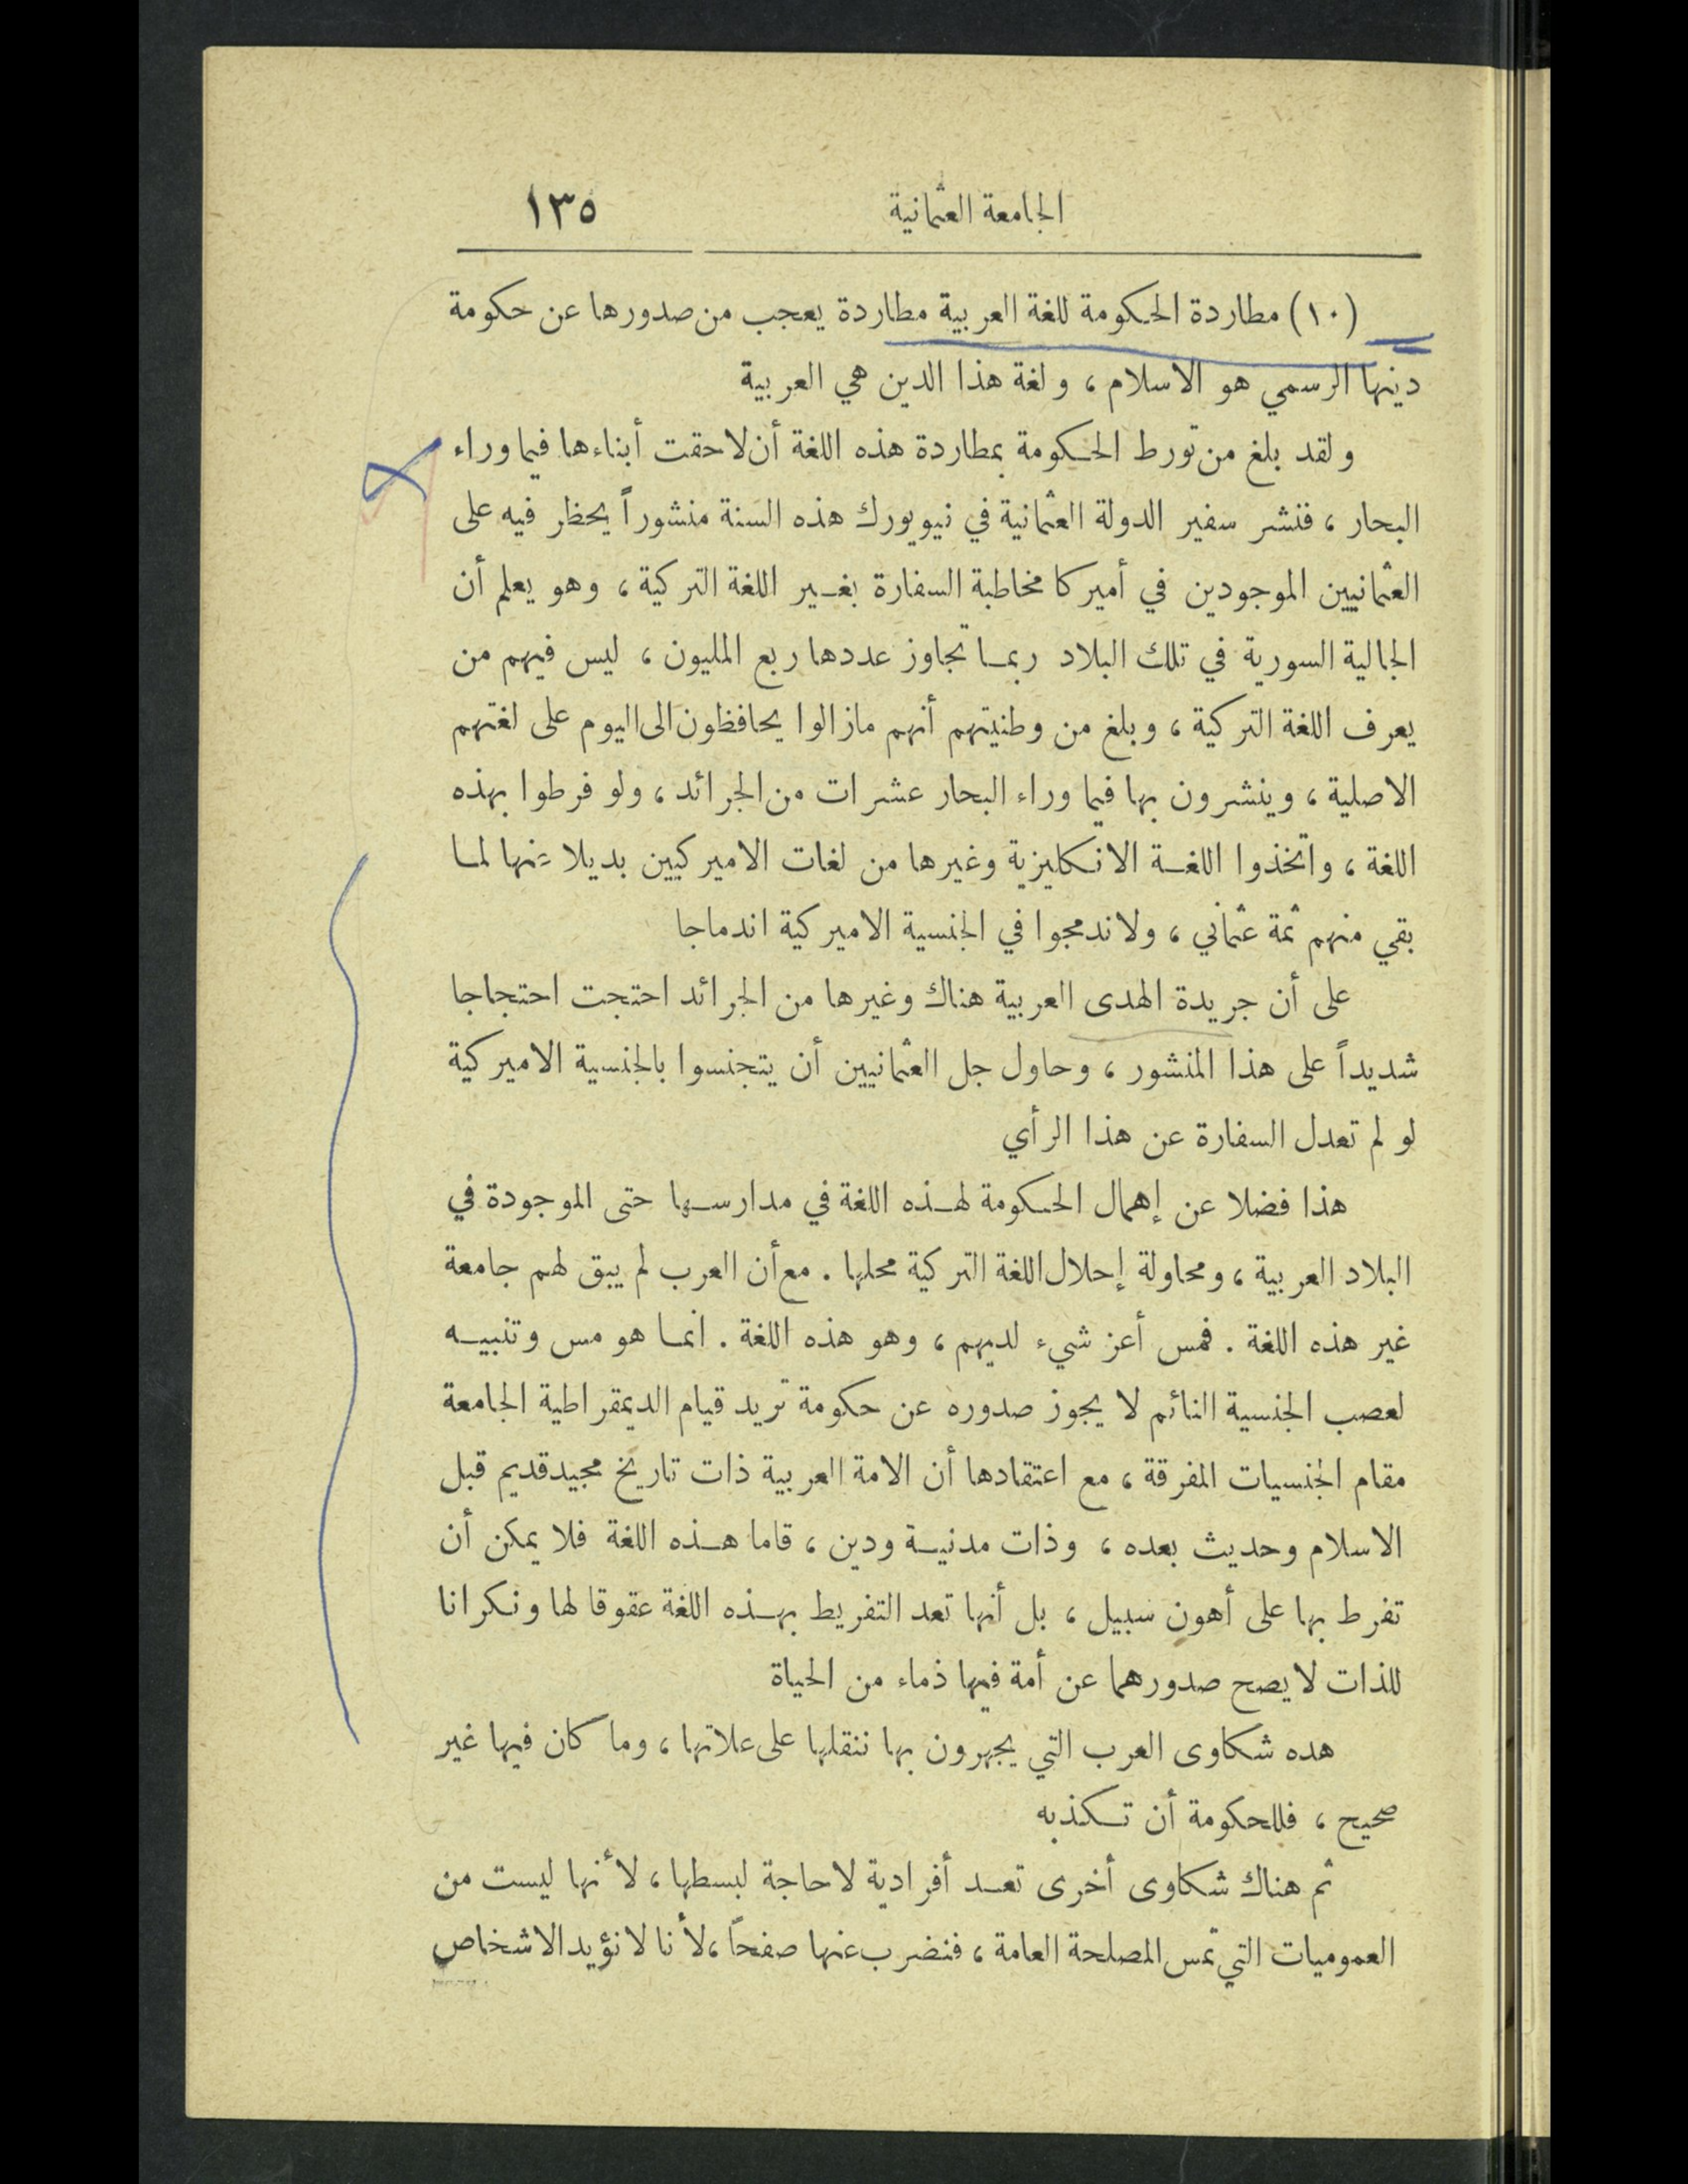 الجامعة العثمانية ١٣٥
(١٠) مطاردة الحكومة للغة العربية مطاردة يعجب من صدورها عن حكومة
دينها الرسمي هو الاسلام ، ولغة هذا الدين هي العربية
ولقد بلغ من تورط الحكومة بمطاردة هذه اللغة أن لاحقت أبناءها فيما وراء
البحار ، فنشر سفير الدولة العثمانية في نيويورك هذه السنة منشوراً يحظر فيه على
العثمانيين الموجودين في أميركا مخاطبة السفارة بغير اللغة التركية ، وهو يعلم أن
الجالية السورية في تلك البلاد ربما تجاوز عددها ربع المليون ، ليس فيهم من
يعرف اللغة التركية ، وبلغ من وطنيتهم أنهم مازالوا يحافظون الى اليوم على لغتهم
الاصلية ، وينشرون بها فيما وراء البحار عشرات من الجرائد ، ولو فرطوا بهذه
اللغة ، واتخذوا اللغة الانكليزية وغيرها من لغات الاميركيين بديلا منها لما
بقي منهم ثمة عثماني ، ولاندمجوا في الجنسية الاميركية اندماجا
على أن جريدة الهدى العربية هناك وغيرها من الجرائد احتجت احتجاجا
شديداً على هذا المنشور ، وحاول جل العثمانيين أن يتجنسوا بالجنسية الاميركية
لو لم تعدل السفارة عن هذا الرأي
هذا فضلا عن إهمال الحكومة لهذه اللغة في مدارسها حتى الموجودة في
البلاد العربية ، ومحاولة إحلال اللغة التركية محلها . مع أن العرب لم يبق لهم جامعة
غير هذه اللغة . فمس أعز شيء لديهم ، وهو هذه اللغة . انما هو مس وتنبيه
لعصب الجنسية النائم لا يجوز صدوره عن حكومة تريد قيام الديمقراطية الجامعة
مقام الجنسيات المفرقة ، مع اعتقادها أن الامة العربية ذات تاريخ مجيد قديم قبل
الاسلام وحديث بعده ، وذات مدنية ودين ، قاما هذه اللغة فلا يمكن أن
تفرط بها على أهون سبيل ، بل أنها تعد التفريط بهذه اللغة عقوقا لها ونكرانا
للذات لا يصح صدورهما عن أمة فيها ذماء من الحياة
هده شكاوى العرب التي يجهرون بها ننقلها على علاتها ، وما كان فيها غير
صحيح ، فللحكومة أن تكذبه
ثم هناك شكاوى أخرى تعد أفرادية لا حاجة لبسطها ، لأنها ليست من
العموميات التي تمس المصلحة العامة ، فنضرب عنها صفحاً ، لأنا لا نؤيد الاشخاص